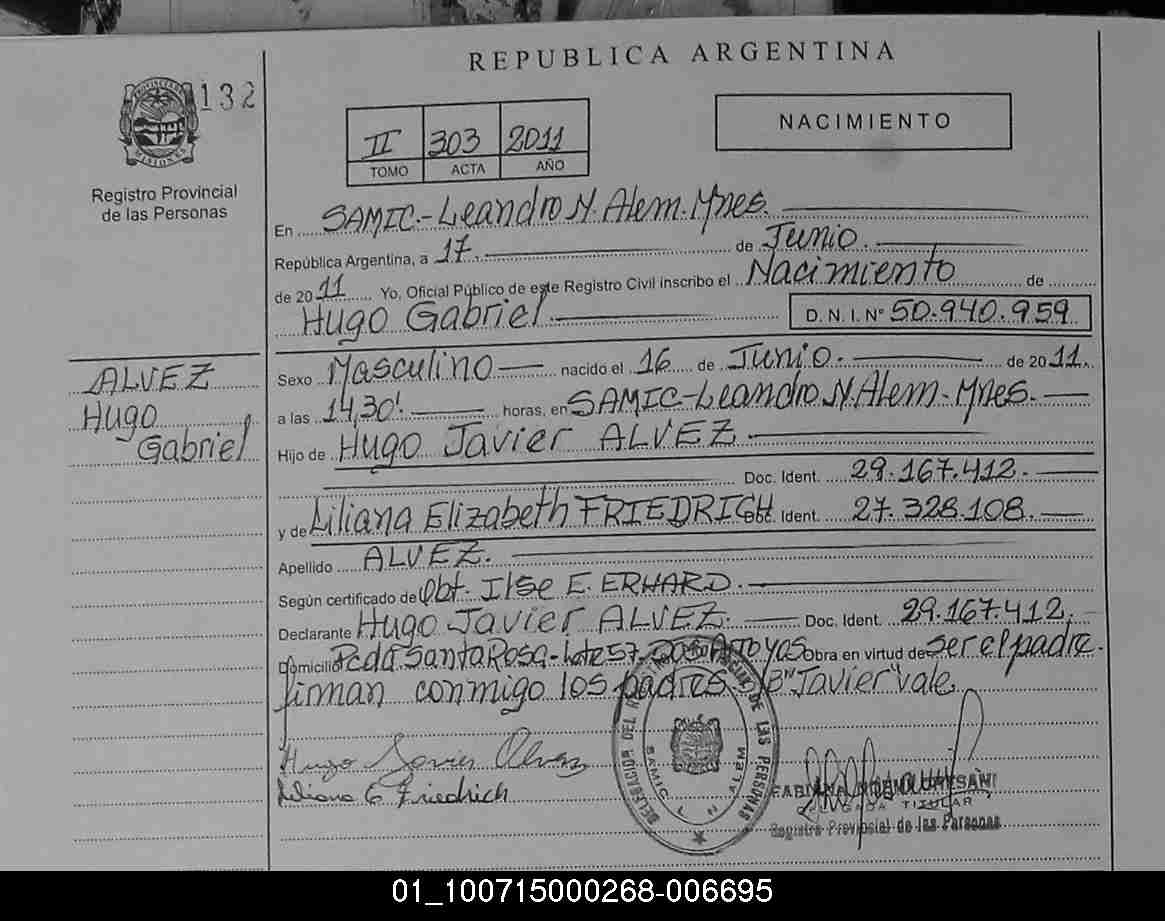 REPUBLICA ARGENTINA
132
PROVINCIA DE MISIONES
Registro Provincial
de las Personas
II 303 2011
TOMO ACTA AÑO
NACIMIENTO
En SAMIC.-Leandro N. Alem.-Mnes.
República Argentina, a 17. de Junio.
de 2011 Yo, Oficial Público de este Registro Civil inscribo el Nacimiento de
Hugo Gabriel. D. N. I. Nº 50.940.959
ALVEZ
Hugo
Gabriel
Sexo Masculino nacido el 16 de Junio. de 2011.
a las 14,30'. horas, en SAMIC-Leandro N. Alem.-Mnes.
Hijo de Hugo Javier ALVEZ
Doc. Ident. 29.167.412.
y de Liliana Elizabeth FRIEDRICH Doc. Ident. 27.328.108.
Apellido ALVEZ.
Según certificado de Obt. Ilse E. ERHARD.
Declarante Hugo Javier ALVEZ. Doc. Ident. 29.167.412.
Domicilio Pcda Santa Rosa-Lote 57, Dos Arroyos Obra en virtud de ser el padre.
firman conmigo los padres. "Javier" vale.
Hugo Javier Alvez
Liliana E Friedrich
DELEGACION DEL REG. PROVINCIAL DE LAS PERSONAS
SAMIC L. N. ALEM
TITULAR
Registro Provincial de las Personas
01_100715000268-006695